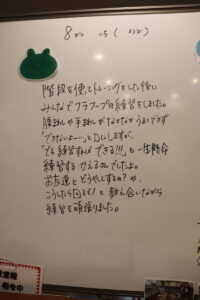 8がつ いち(
階段を使ってトレーニングをした後に
みんなでフラフープの練習をしました。
腰まわしや手まわしがなかなかうまくできず
「できないよ…」と口にしますが、
「でも練習すればできる!!!」と一生懸命
練習するかえるぐみでしたよ。
お友達とどうやってするの?や、
こうしたら回るよ!と教え合いながら
練習を頑張りました。
発令中